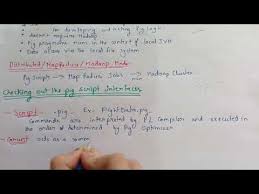 → for developing and testing Pig Logic
→ doesn't require MapReduce or Hadoop
→ Pig programs runs in the context of local JVM
→ Data access via the local file system
Distributed / MapReduce / Hadoop Mode
Pig Script → Map Reduce Jobs → run Hadoop Cluster
Checking out the Pig Script Interfaces
→ Script .pig Ex:
Commands are interpreted by Compiler and executed in
the order determined by Pig Optimizer
→ Grunt acts as a comm